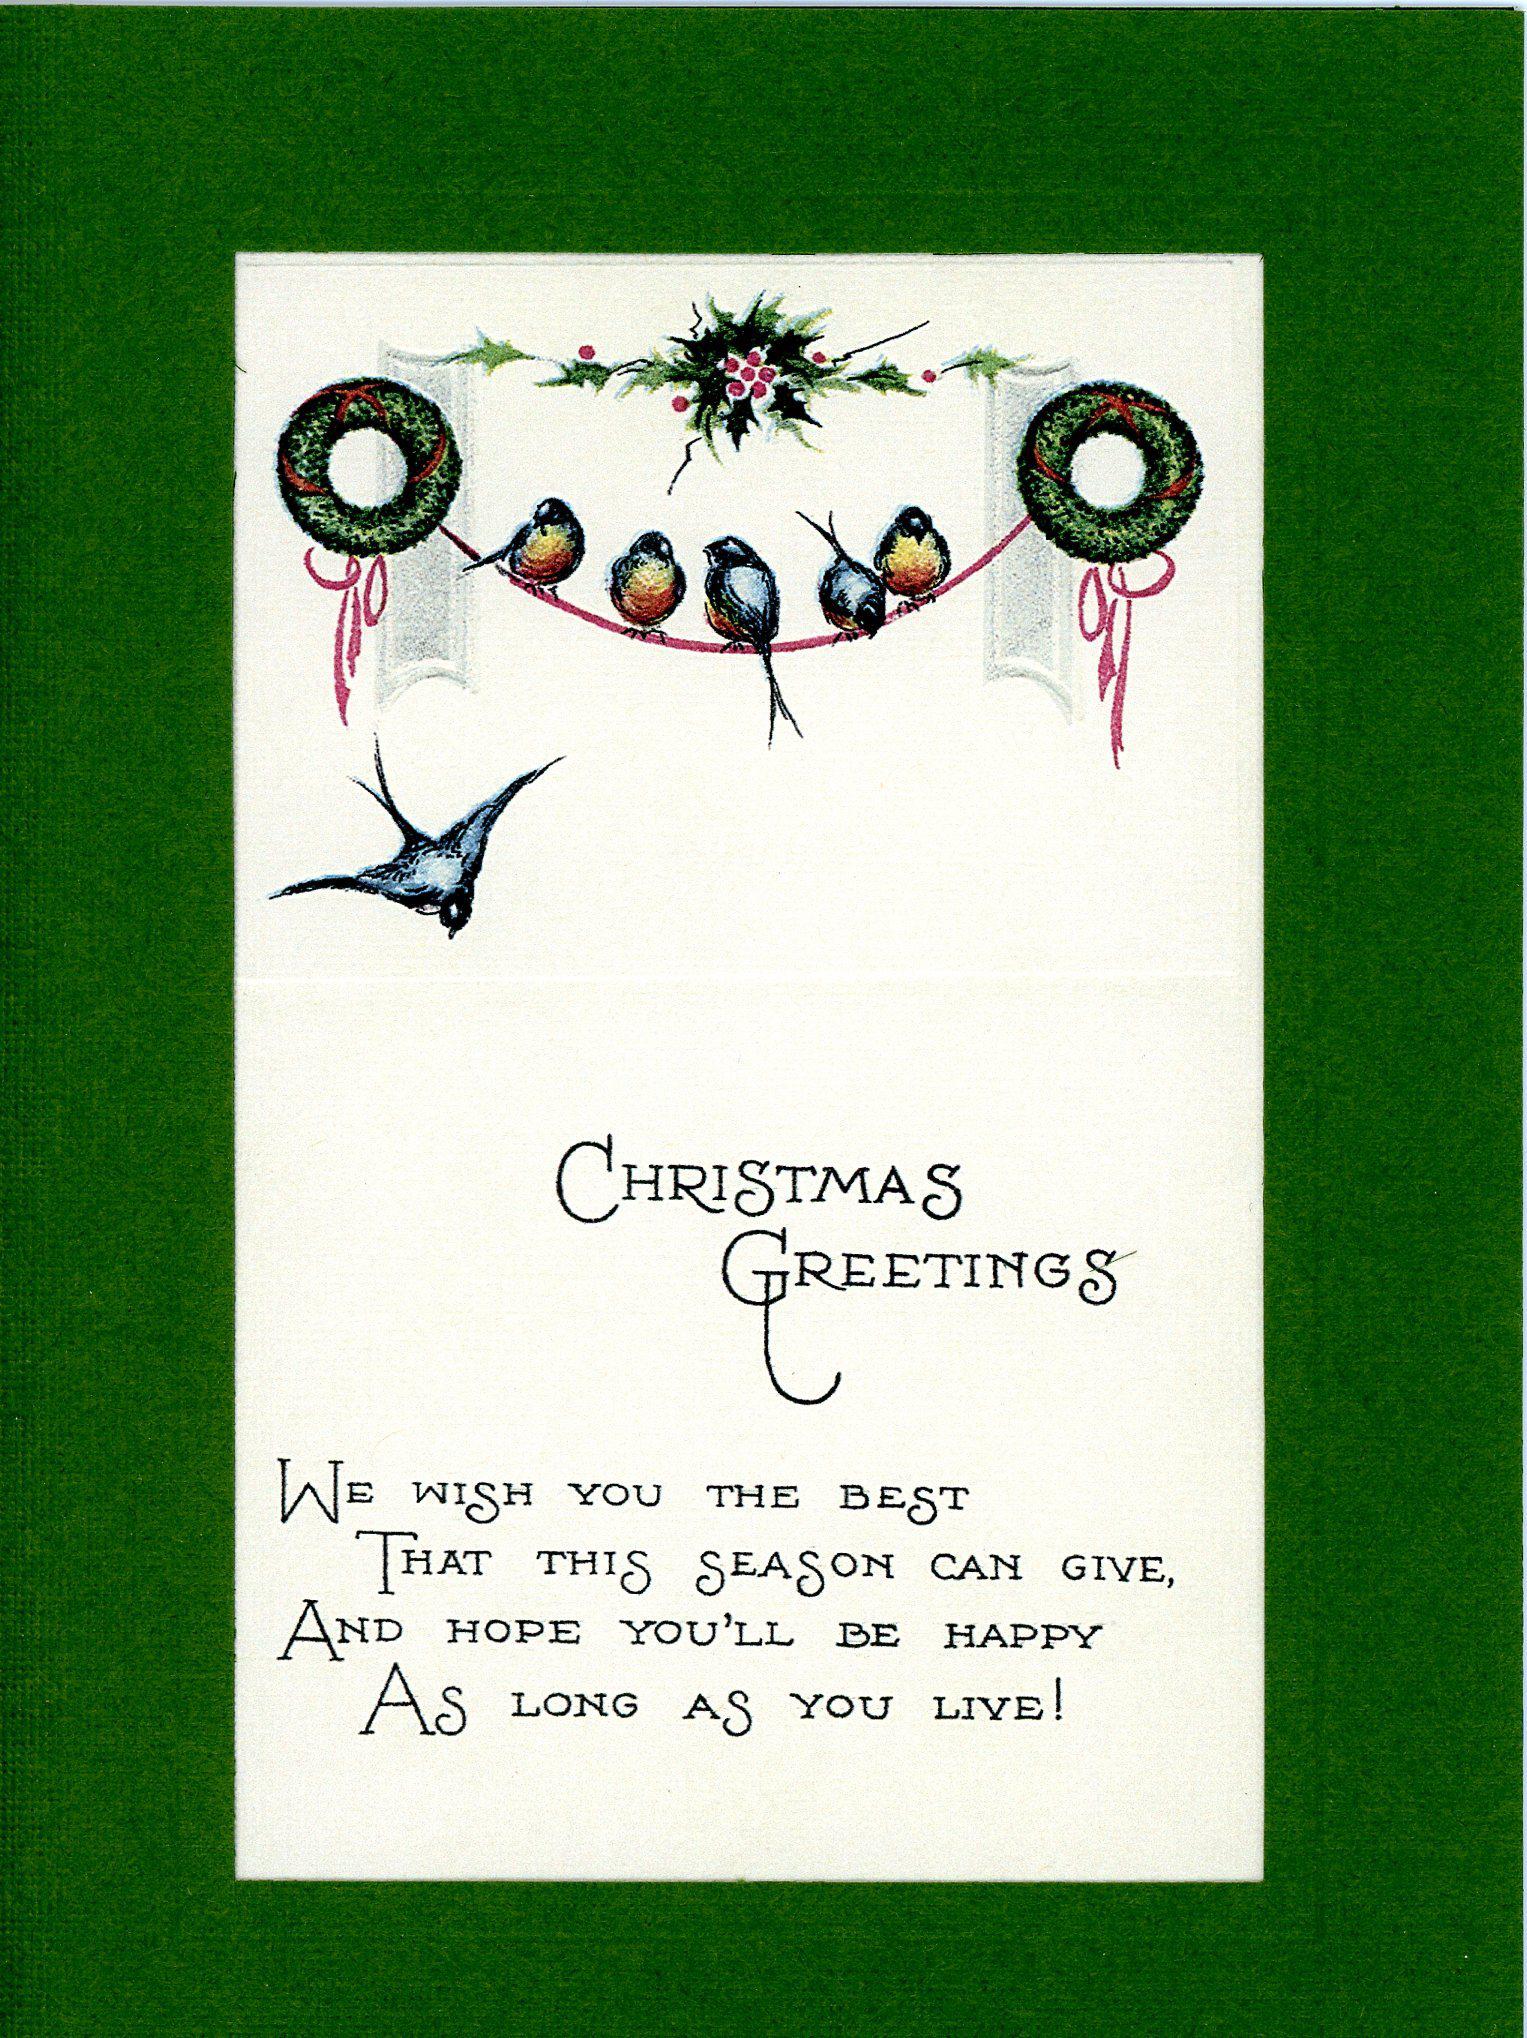 Christmas
Greetings
We wish you the best
That this season can give,
And hope you'll be happy
As long as you live!